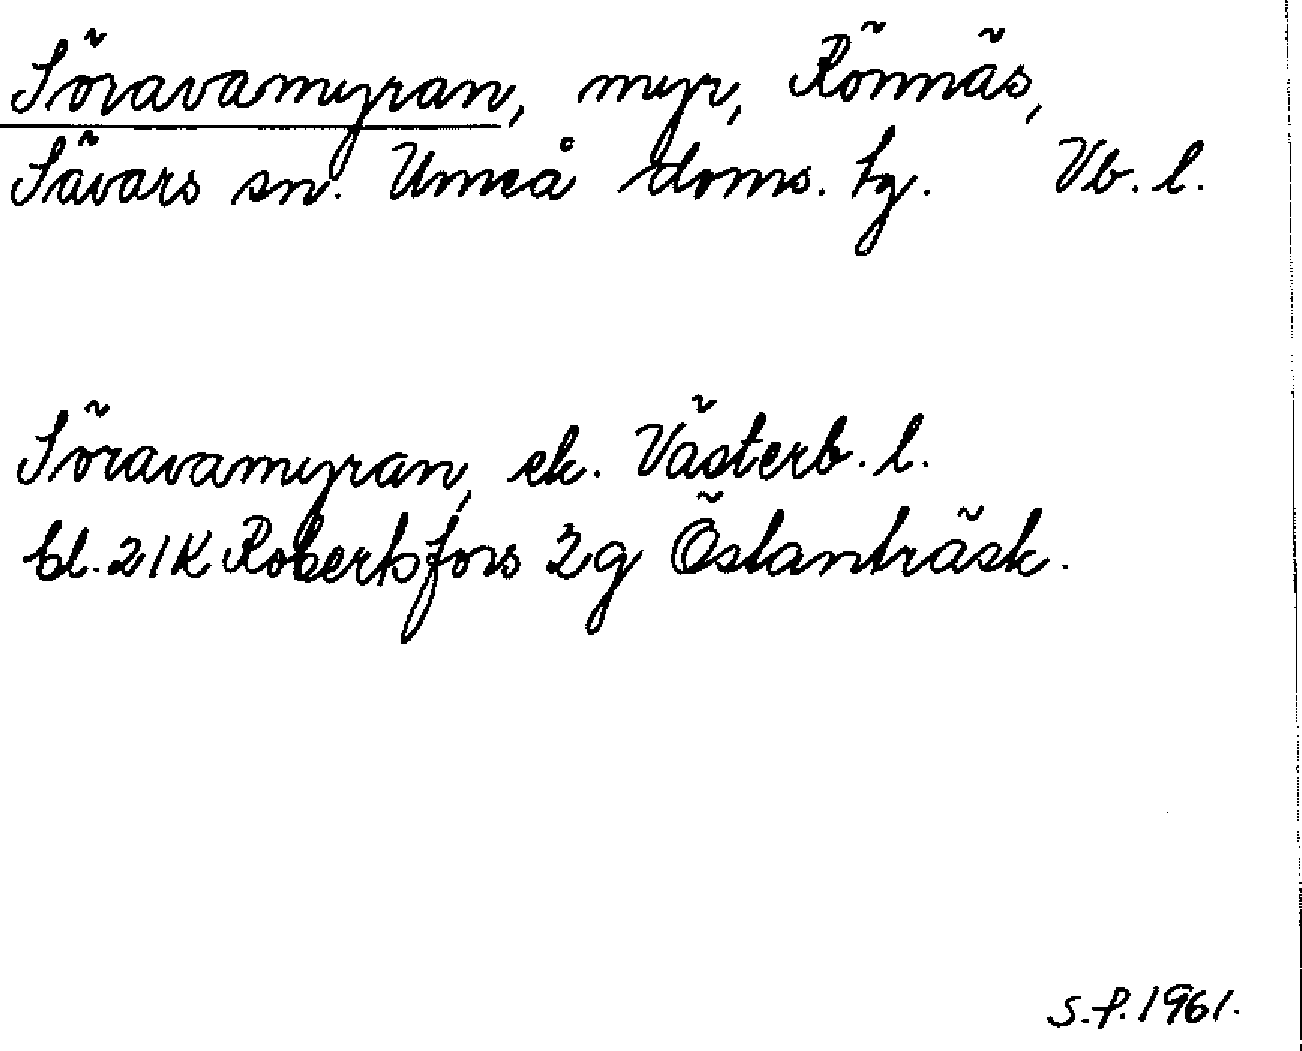 Söravamyran, myr, Rönnäs,
Sävars sn. Umeå doms. tg. Vb. l.
Söravamyran, ek. Västerb. l.
bl. 21K Robertsfors 2g Östanträsk.
S.f. 1961.